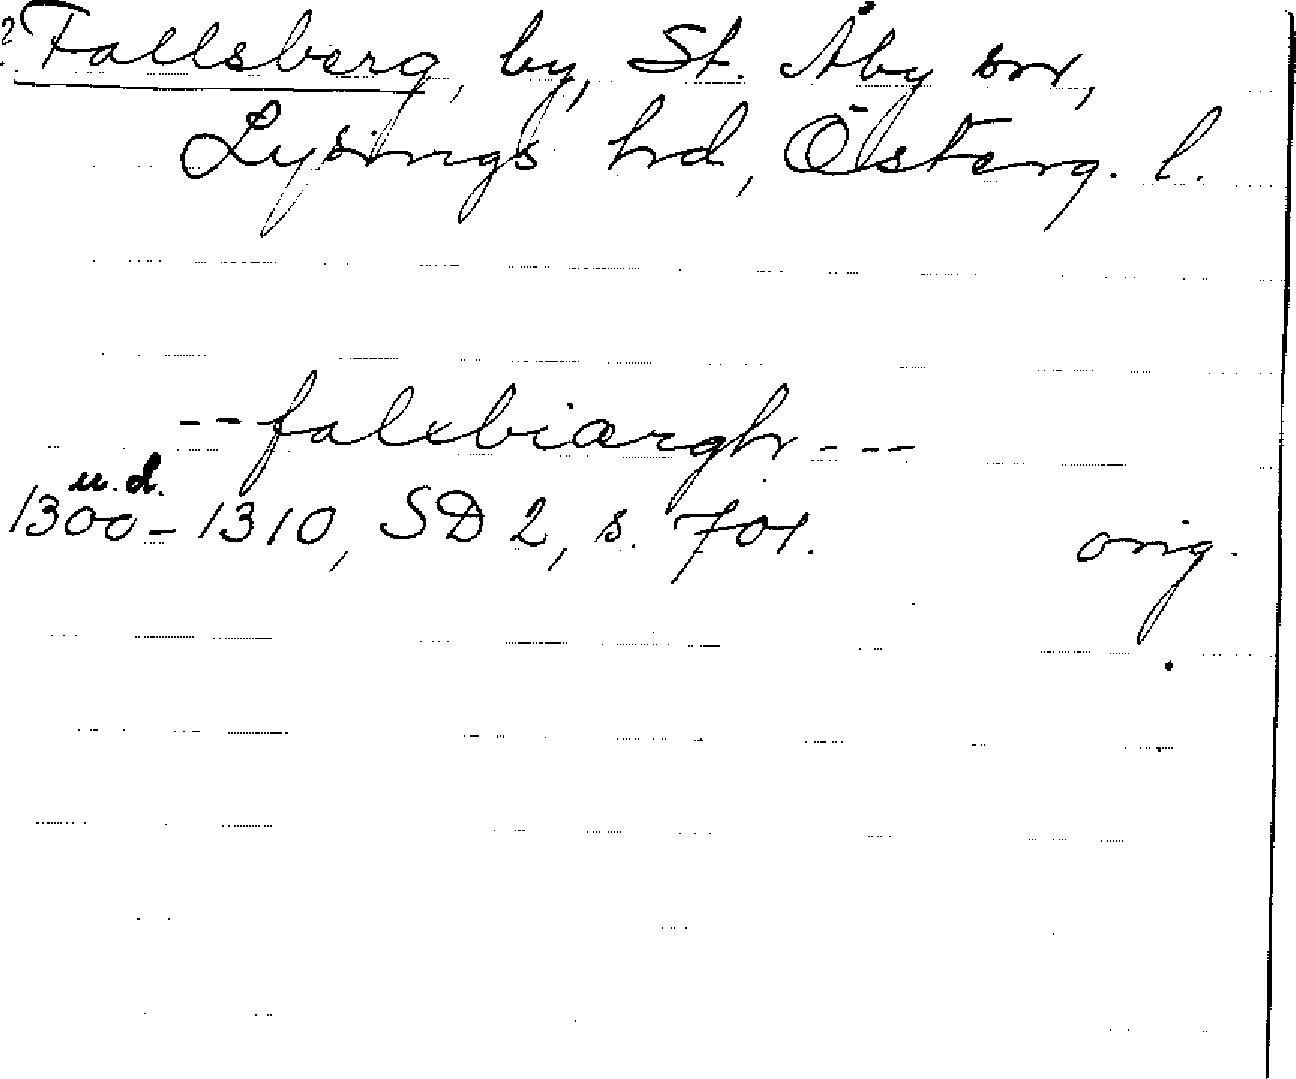 ? Fallsberg, by, St. Åby sn,
Lysings hd, Österg. l.
-- falebiærgh ---
u. d.
1300 - 1310, SD 2, s. 701. orig.